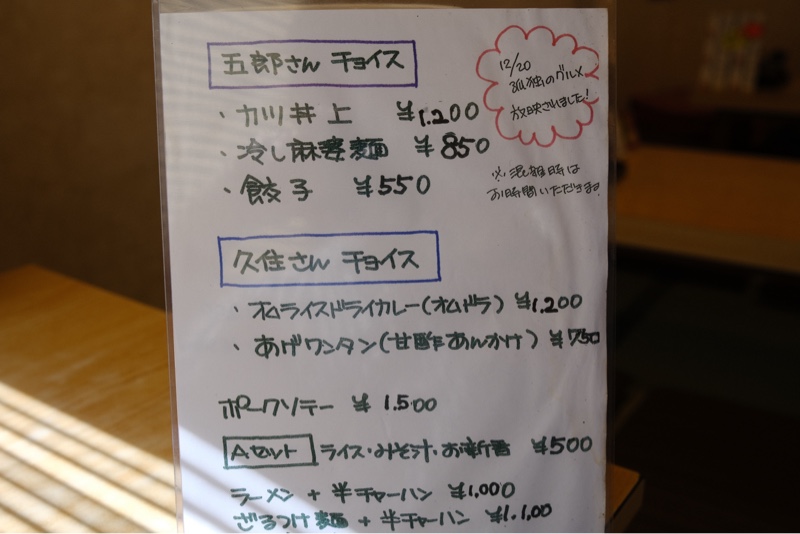 五郎さん チョイス
・カツ丼 上 ¥1.200
・冷し麻婆麺 ¥850
・餃子 ¥550
12/20
孤独のグルメ
放映されました!
※混雑時は
お時間いただきます
久住さん チョイス
・オムライスドライカレー(オムドラ) ¥1.200
・あげワンタン(甘酢あんかけ) ¥750
ポークソテー ¥1.500
Aセット ライス・みそ汁・お新香 ¥500
ラーメン + 半チャーハン ¥1,000
ざるつけ麺 + 半チャーハン ¥1.100